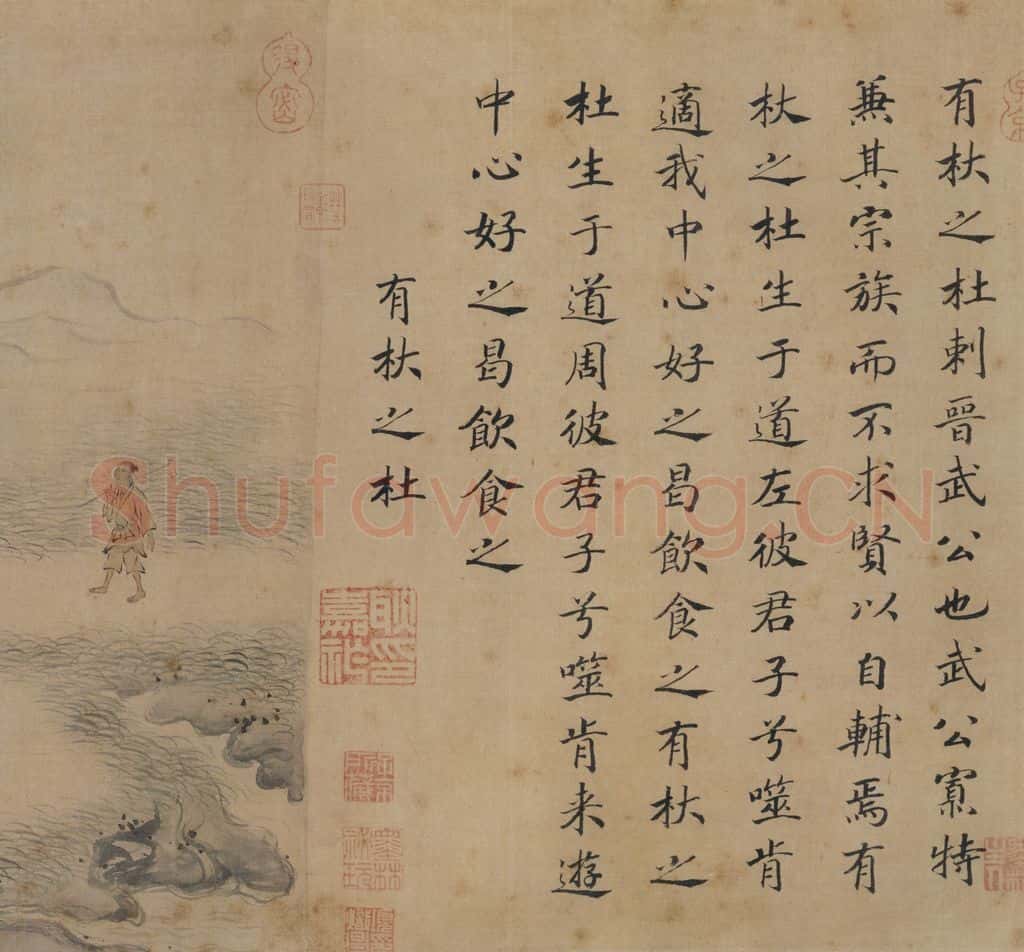 有杕之杜刺晉武公也武公寡特
兼其宗族而不求賢以自輔焉有
杕之杜生于道左彼君子兮噬肯
適我中心好之曷飲食之有杕之
杜生于道周彼君子兮噬肯来遊
中心好之曷飲食之
有杕之杜
Shufawang.CN